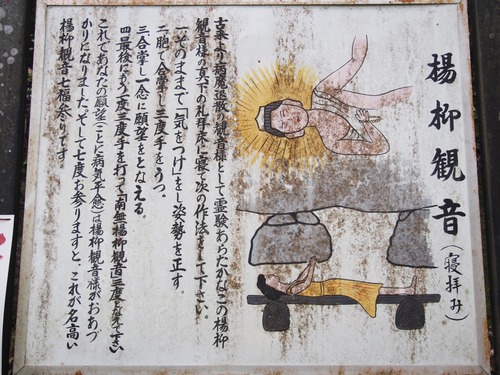 楊柳観音(寝拝み)
古来より病魔退散の観音様として霊験あらたかなこの楊柳
観音様の真下の礼拝床に寝て次の作法をして下さい。
一、そのままで「気をつけ」をし姿勢を正す。
二、胸で合掌し三度手をうつ。
三、合掌し一念に願望をとなえる。
四、最後にもう一度三度手を打って南無楊柳観音三度となえて下さい
これであなたの願望(ことに病気平念)は楊柳観音様がおあづ
かりになりました。そして七度お参りますと、これが名高い
楊柳観音七福参りです。